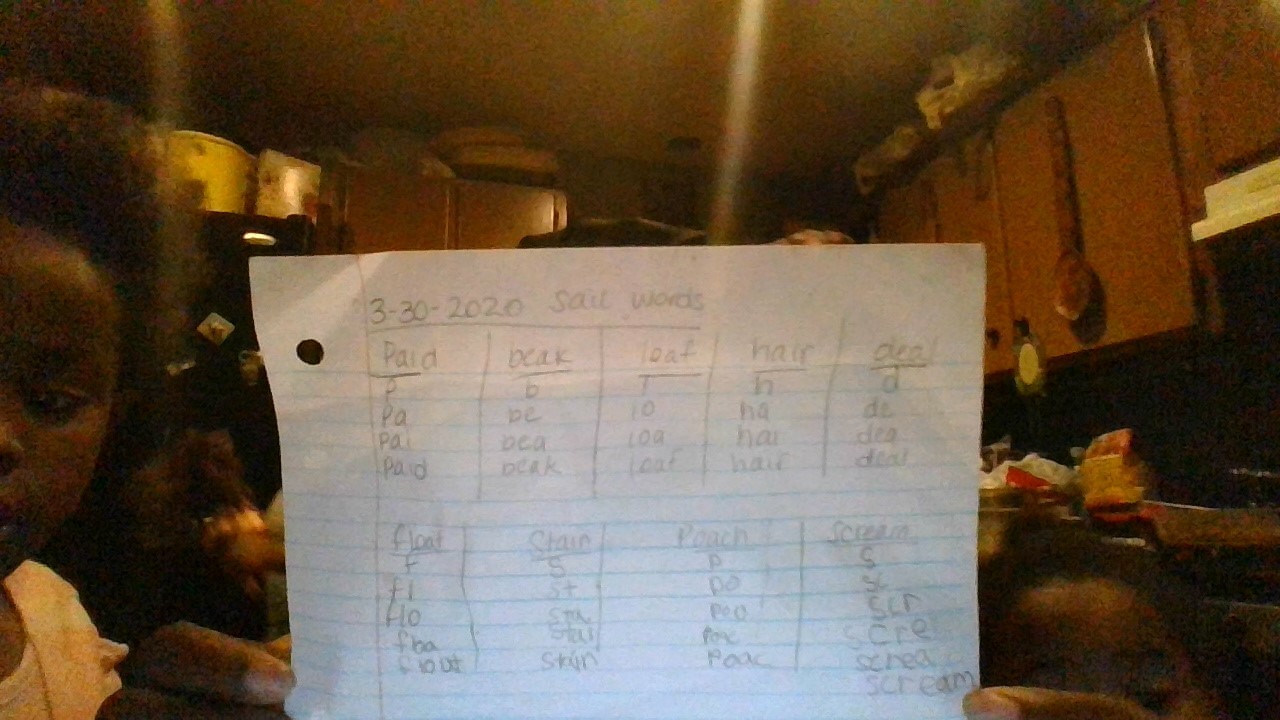 3-30-2020 Sail words
Paid beak loaf hair deal
P b l h d
Pa be lo ha de
Pai bea loa hai dea
Paid beak loaf hair deal
float Stain Poach Scream
f S P S
fl st po sc
flo sta poa scr
floa stai poac scre
float stain Poac screa
scream